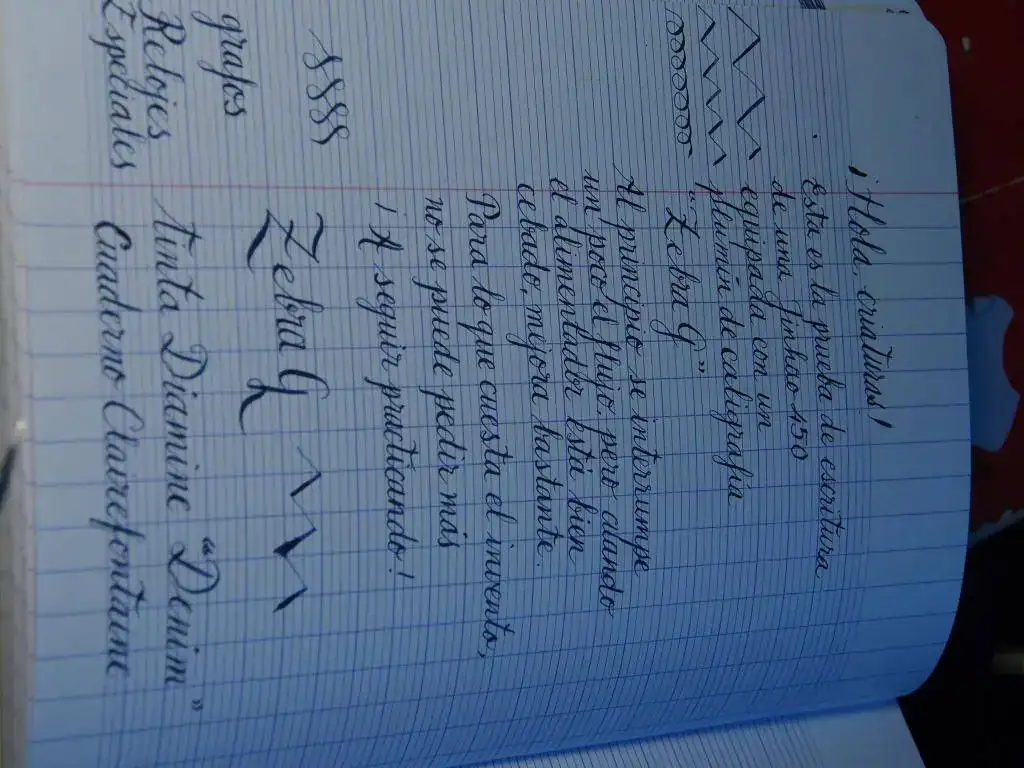 ¡Hola, criaturas!
Esta es la prueba de escritura
de una Jinhao 150
equipada con un
plumín de caligrafía
"Zebra G"
Al principio se interrumpe
un poco el flujo, pero cuando
el alimentador está bien
cebado, mejora bastante.
Para lo que cuesta el invento,
no se puede pedir más
¡A seguir practicando!
Zebra G
Tinta Diamine "Denim"
Cuaderno Clairefontaine
grafos
Relojes
Especiales